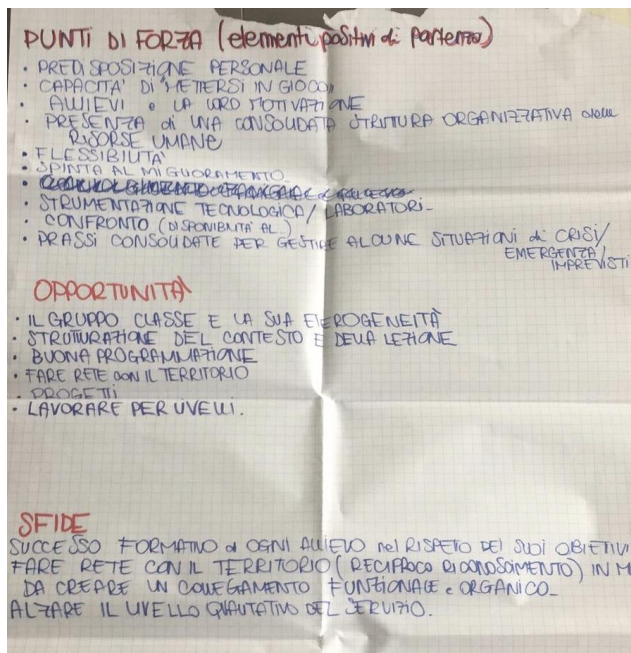 PUNTI DI FORZA (elementi positivi di partenza)
• PREDISPOSIZIONE PERSONALE
• CAPACITA' DI METTERSI IN GIOCO
• ALLIEVI e LA LORO MOTIVAZIONE
• PRESENZA di UNA CONSOLIDATA STRUTTURA ORGANIZZATIVA delle
RISORSE UMANE
• FLESSIBILITA'
• SPINTA AL MIGLIORAMENTO
• STRUMENTAZIONE TECNOLOGICA / LABORATORI-
• CONFRONTO (DISPONIBILITA' AL)
• PRASSI CONSOLIDATE PER GESTIRE ALCUNE SITUAZIONI di CRISI/
EMERGENZA/
IMPREVISTI
OPPORTUNITA'
• IL GRUPPO CLASSE E LA SUA ETEROGENEITÀ
• STRUTTURAZIONE DEL CONTESTO E DELLA LEZIONE
• BUONA PROGRAMMAZIONE
• FARE RETE CON IL TERRITORIO
• PROGETTI
• LAVORARE PER LIVELLI.
SFIDE
SUCCESSO FORMATIVO di OGNI ALLIEVO nel RISPETTO DEI SUOI OBIETTIVI
FARE RETE CON IL TERRITORIO (RECIPROCO RICONOSCIMENTO) IN M
DA CREARE UN COLLEGAMENTO FUNZIONALE e ORGANICO-
ALZARE IL LIVELLO QUALITATIVO DEL SERVIZIO.